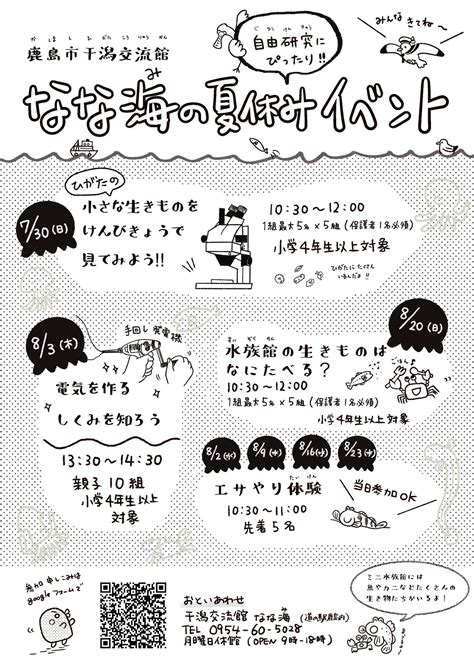 かしましひがたこうりゅうかん
鹿島市干潟交流館
じゆうけんきゅう
自由研究に
ぴったり!!
みんな きてね〜
み
なな海の夏休みイベント
7/30(日)
ひがたの
小さな生きものを
けんびきょうで
見てみよう!!
10:30〜12:00
1組最大5名×5組(保護者1名必須)
小学4年生以上対象
ひがたに たくさん
いるんだよ!!
8/3(木)
手回し発電機
電気を作る
しくみを知ろう
13:30〜14:30
親子10組
小学4年生以上
対象
8/20(日)
すいぞくかん
水族館の生きものは
なにたべる?
ごはん♪
10:30〜12:00
1組最大5名×5組(保護者1名必須)
小学4年生以上対象
8/2(水) 8/9(水) 8/16(水) 8/23(水)
たいけん
エサやり体験
10:30〜11:00
先着5名
当日参加OK
参加申しこみは
googleフォームで
おといあわせ
干潟交流館 なな海 (道の駅鹿島内)
TEL 0954-60-5028
月曜日休館 (OPEN 9時-18時)
ミニ水族館には
魚やカニなどたくさんの
生き物たちがいるよ!